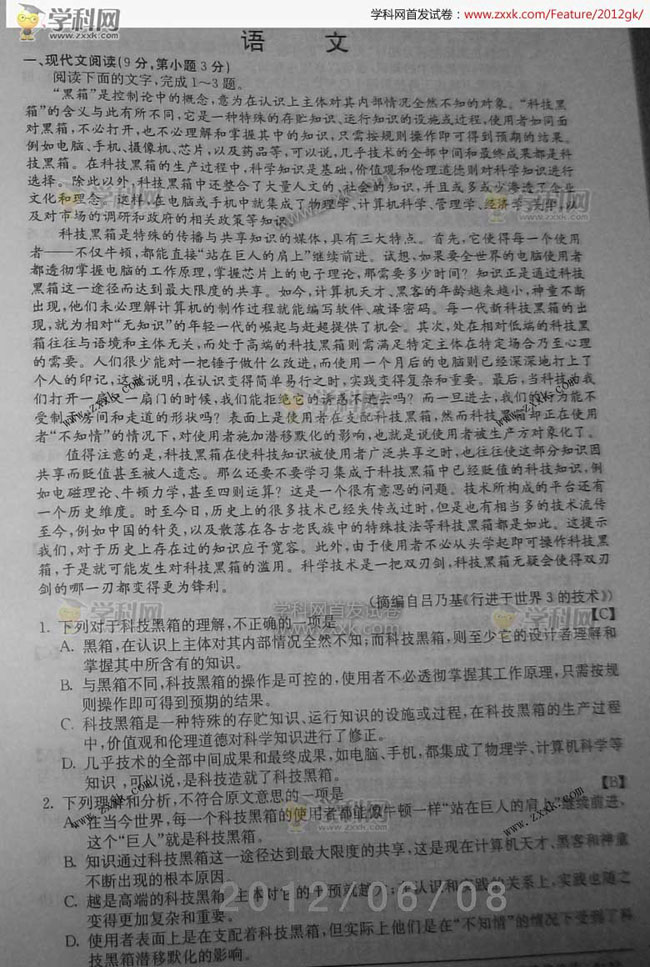 学科网首发试卷：www.zxxk.com/Feature/2012gk/
学科网
语 文
一、现代文阅读(9分,第小题3分)
阅读下面的文字,完成1～3题。
“黑箱”是控制论中的概念,意为在认识上主体对其内部情况全然不知的对象。“科技黑
箱”的含义与此有所不同,它是一种特殊的存贮知识、运行知识的设施或过程,使用者如同面
对黑箱,不必打开,也不必理解和掌握其中的知识,只需按规则操作即可得到预期的结果。
例如电脑、手机、摄像机、芯片,以及药品等,可以说,几乎技术的全部中间和最终成果都是科
技黑箱。在科技黑箱的生产过程中,科学知识是基础,价值观和伦理道德则对科学知识进行
选择。除此以外,科技黑箱中还整合了大量人文的、社会的知识,并且或多或少渗透了企业
文化和理念。这样,在电脑或手机中就集成了物理学、计算机科学、管理学、经济学、美学,以
及对市场的调研和政府的相关政策等知识。
科技黑箱是特殊的传播与共享知识的媒体,具有三大特点。首先,它使得每一个使用
者——不仅牛顿,都能直接“站在巨人的肩上”继续前进。试想,如果要全世界的电脑使用者
都透彻掌握电脑的工作原理,掌握芯片上的电子理论,那需要多少时间？知识正是通过科技
黑箱这一途径而达到最大限度的共享。如今,计算机天才、黑客的年龄越来越小,神童不断
出现,他们未必理解计算机的制作过程就能编写软件、破译密码。每一代新科技黑箱的出
现,就为相对“无知识”的年轻一代的崛起与赶超提供了机会。其次,处在相对低端的科技黑
箱往往与语境和主体无关,而处于高端的科技黑箱则需满足特定主体在特定场合乃至心理
的需要。人们很少能对一把锤子做什么改进,而使用一个月后的电脑则已经深深地打上了
个人的印记,这就说明,在认识变得简单易行之时,实践变得复杂和重要。最后,当科技为我
们打开一扇又一扇门的时候,我们能拒绝它的诱惑不进去吗？而一旦进去,我们的行为能不
受制于房间和走道的形状吗？表面上是使用者在支配科技黑箱,然而科技黑箱却正在使用
者“不知情”的情况下,对使用者施加潜移默化的影响,也就是说使用者被生产方对象化了。
值得注意的是,科技黑箱在使科技知识被使用者广泛共享之时,也往往使这部分知识因
共享而贬值甚至被人遗忘。那么还要不要学习集成于科技黑箱中已经贬值的科技知识,例
如电磁理论、牛顿力学,甚至四则运算？这是一个很有意思的问题。技术所构成的平台还有
一个历史维度。时至今日,历史上的很多技术已经失传或过时,但是也有相当多的技术流传
至今,例如中国的针灸,以及散落在各古老民族中的特殊技法等科技黑箱都是如此。这提示
我们,对于历史上存在过的知识应予宽容。此外,由于使用者不必从头学起即可操作科技黑
箱,于是就可能发生对科技黑箱的滥用。科学技术是一把双刃剑,科技黑箱无疑会使得双刃
剑的哪一刃都变得更为锋利。
(摘编自吕乃基《行进于世界3的技术》)
1. 下列对于科技黑箱的理解,不正确的一项是 【C】
A. 黑箱,在认识上主体对其内部情况全然不知;而科技黑箱,则至少它的设计者理解和
掌握其中所含有的知识。
B. 与黑箱不同,科技黑箱的操作是可控的,使用者不必透彻掌握其工作原理,只需按规
则操作即可得到预期的结果。
C. 科技黑箱是一种特殊的存贮知识、运行知识的设施或过程,在科技黑箱的生产过程
中,价值观和伦理道德对科学知识进行了修正。
D. 几乎技术的全部中间成果和最终成果,如电脑、手机,都集成了物理学、计算机科学等
知识,可以说,是科技造就了科技黑箱。
2. 下列理解和分析,不符合原文意思的一项是 【B】
A. 在当今世界,每一个科技黑箱的使用者都能像牛顿一样“站在巨人的肩上”继续前进,
这个“巨人”就是科技黑箱。
B. 知识通过科技黑箱这一途径达到最大限度的共享,这是现在计算机天才、黑客和神童
不断出现的根本原因。
C. 越是高端的科技黑箱,主体对它的干预就越大;在认识和实践的关系上,实践也随之
变得更加复杂和重要。
D. 使用者表面上是在支配着科技黑箱,但实际上他们是在“不知情”的情况下受到了科
技黑箱潜移默化的影响。
2012/06/08